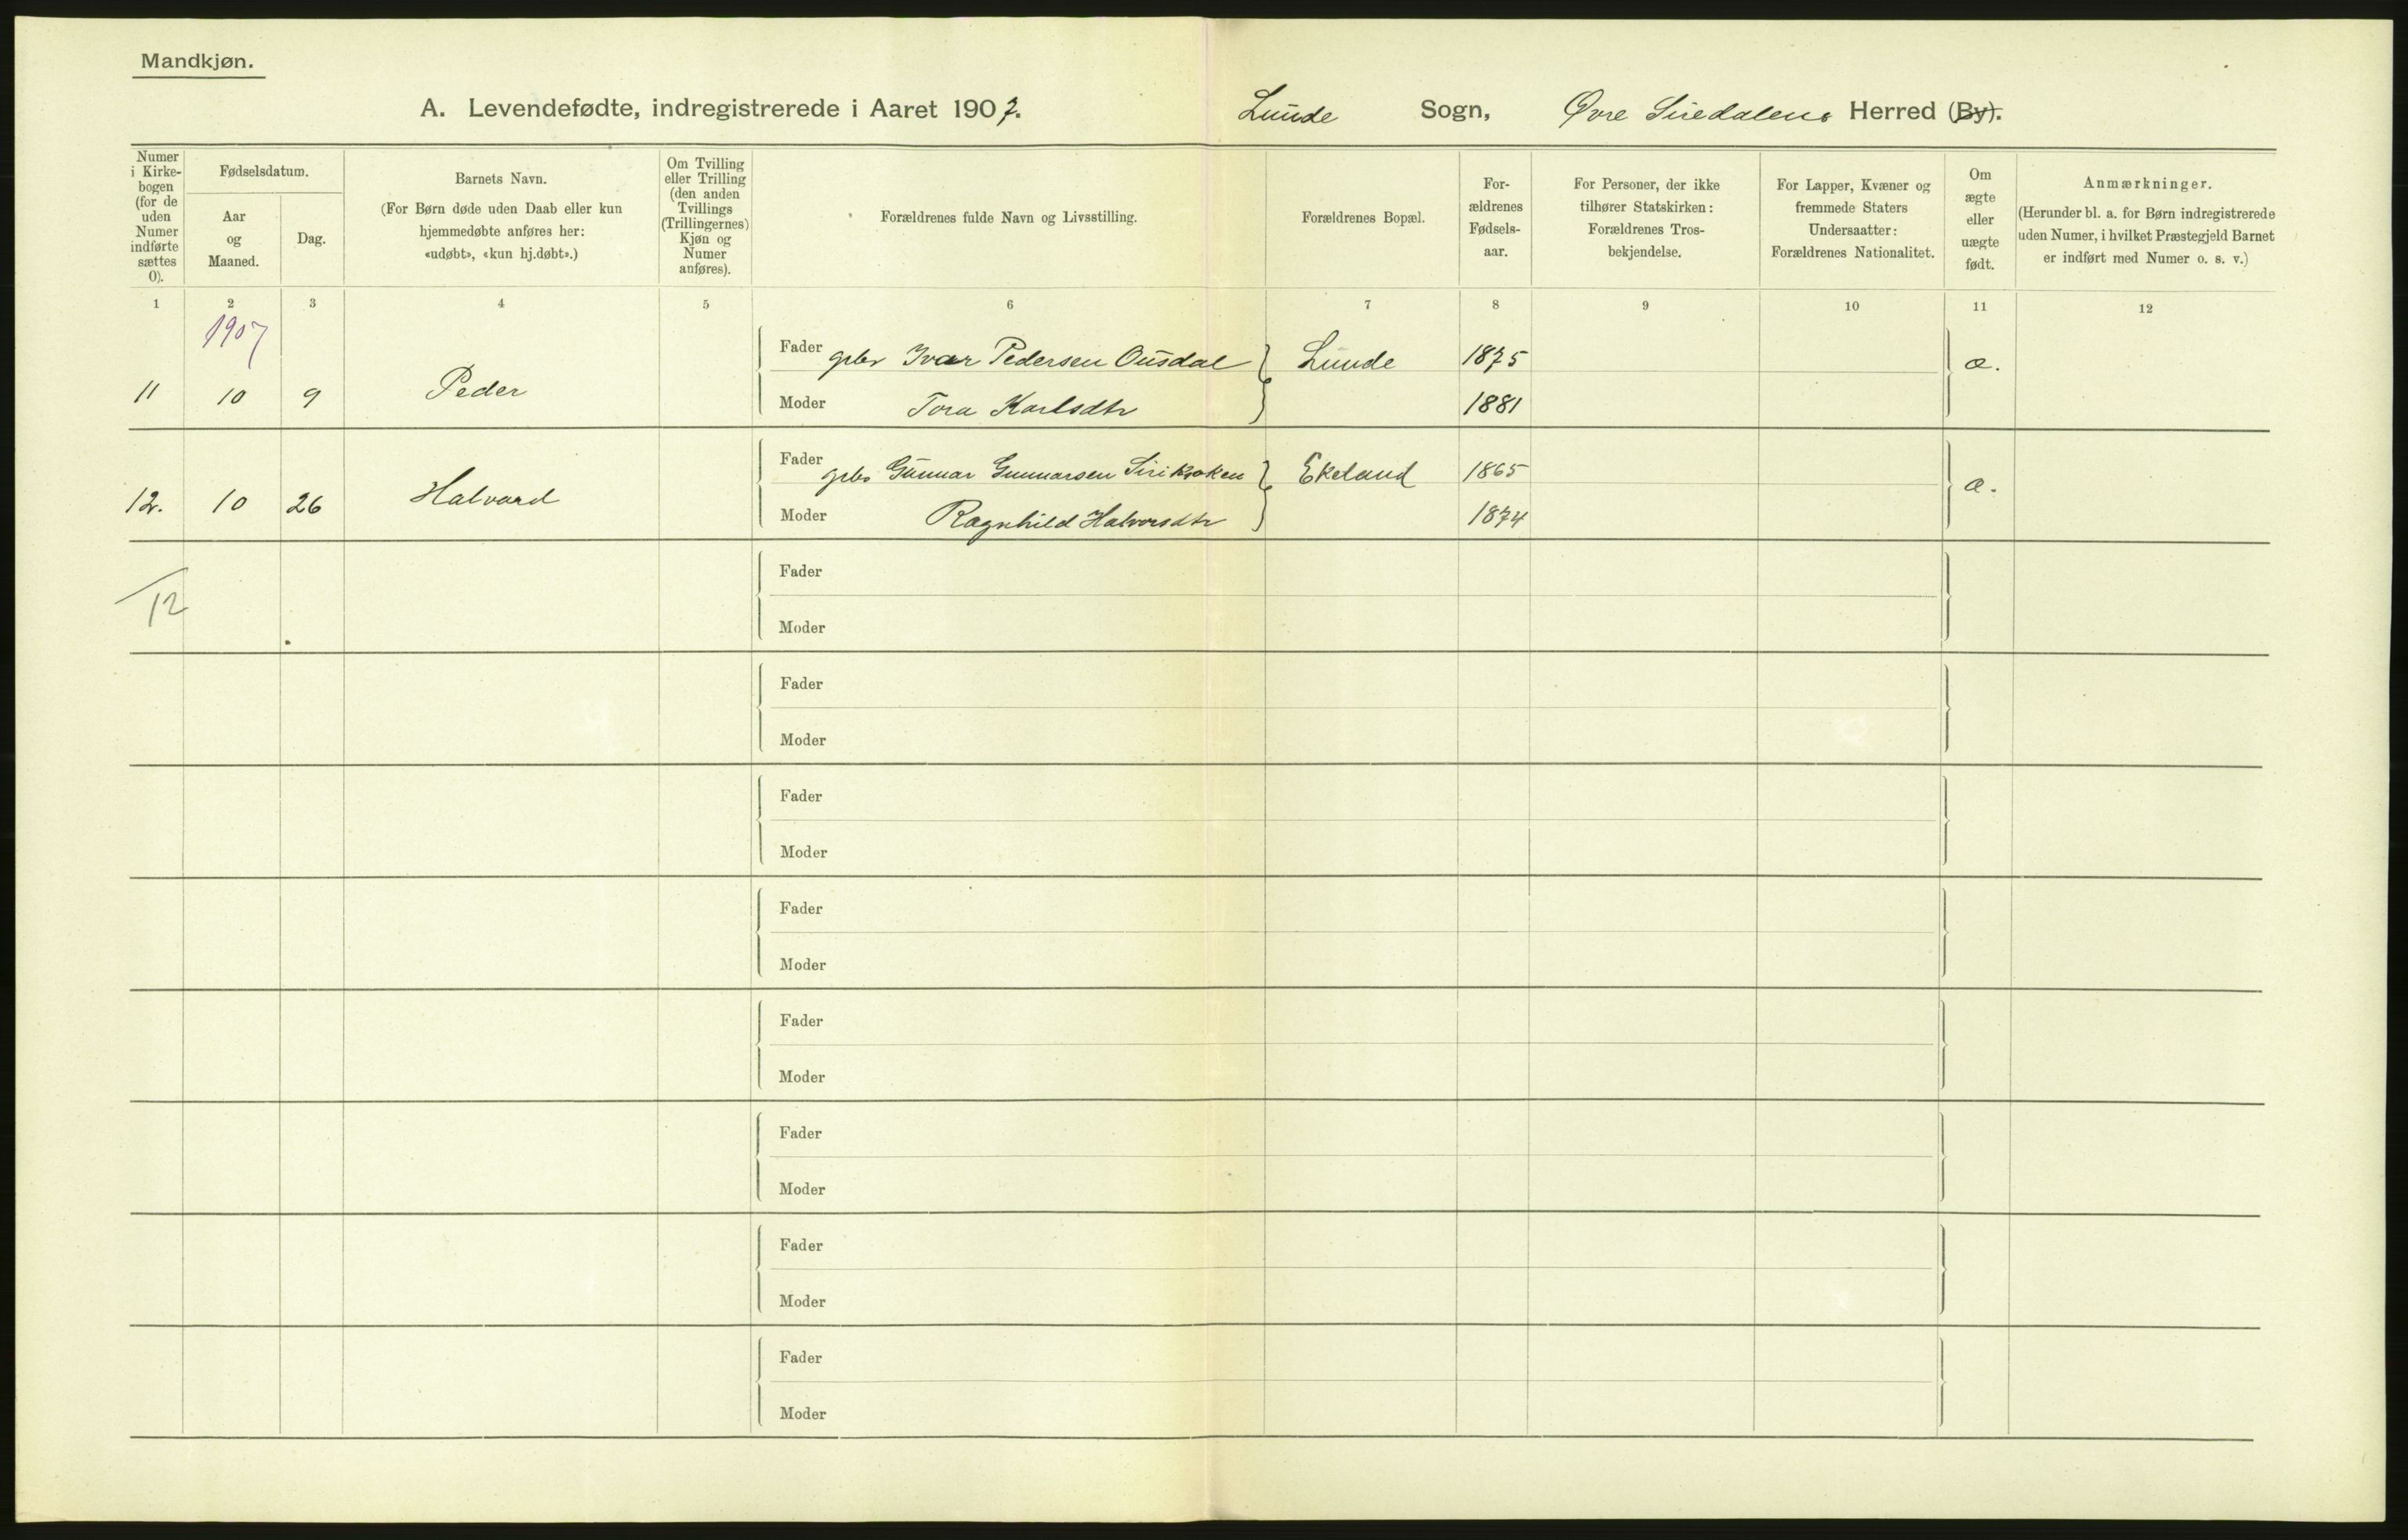 Mandkjøn.
A. Levendefødte, indregistrerede i Aaret 1907. Lunde Sogn, Øvre Siredalens Herred (By).
Numer i Kirkebogen (for de uden Numer indførte sættes 0).
Fødselsdatum.
Aar og Maaned.
Dag.
Barnets Navn.
(For Børn døde uden Daab eller kun
hjemmedøbte anføres her:
«udøbt», «kun hj.døbt».)
Om Tvilling
eller Trilling
(den anden
Tvillings
(Trillingernes)
Kjøn og
Numer
anføres).
Forældrenes fulde Navn og Livsstilling.
Forældrenes Bopæl.
For-
ældrenes
Fødsels-
aar.
For Personer, der ikke
tilhører Statskirken:
Forældrenes Tros-
bekjendelse.
For Lapper, Kvæner og
fremmede Staters
Undersaatter:
Forældrenes Nationalitet.
Om
ægte
eller
uægte
født.
Anmærkninger.
(Herunder bl. a. for Børn indregistrerede
uden Numer, i hvilket Præstegjeld Barnet
er indført med Numer o. s. v.)
1 2 3 4 5 6 7 8 9 10 11 12
1907
Fader gbr Ivar Pedersen Ousdal Lunde 1875 æ.
11 10 9 Peder
Moder Tora Karlsdtr 1881
Fader Gunnar Gunnarsen Sirikroken Ekeland 1865 æ.
12. 10 26 Halvard
Moder Ragnhild Halvorsdtr 1874
Fader
12
Moder
Fader
Moder
Fader
Moder
Fader
Moder
Fader
Moder
Fader
Moder
Fader
Moder
Fader
Moder